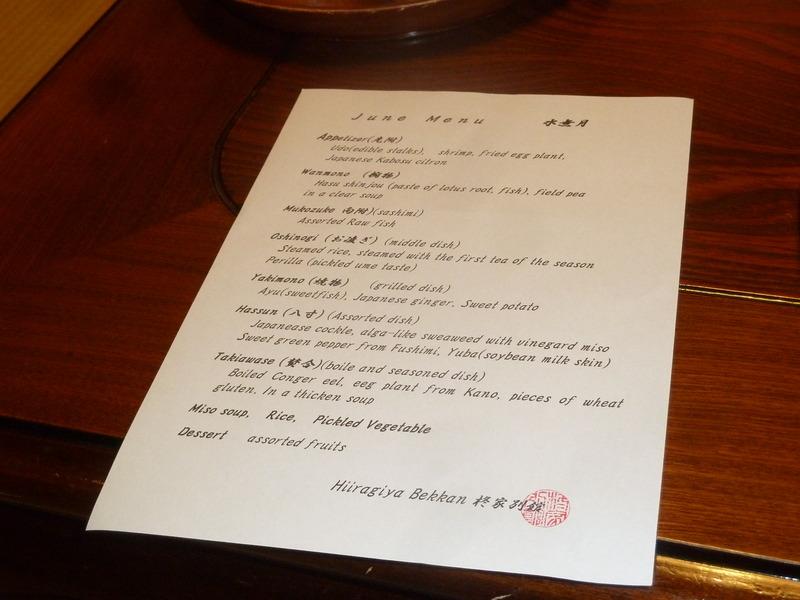 June Menu 水無月
Appetizer(先附)
Udo(edible stalks), shrimp, fried egg plant,
Japanese Kabosu citron
Wanmono (椀物)
Hasu shinjou (paste of lotus root, fish), field pea
in a clear soup
Mukozuke 向附)(sashimi)
Assorted Raw fish
Oshinogi (お凌ぎ) (middle dish)
Steamed rice, steamed with the first tea of the season
Perilla (pickled ume taste)
Yakimono (焼物) (grilled dish)
Ayu(sweetfish), Japanese ginger, Sweet potato
Hassun (八寸) (Assorted dish)
Japanease cockle, alga-like sweaweed with vinegard miso
Sweet green pepper from Fushimi, Yuba(soybean milk skin)
Takiawase (焚合)(boile and seasoned dish)
Boiled Conger eel, eeg plant from Kano, pieces of wheat
gluten. In a thicken soup
Miso soup, Rice, Pickled Vegetable
Dessert assorted fruits
Hiiragiya Bekkan 柊家別館